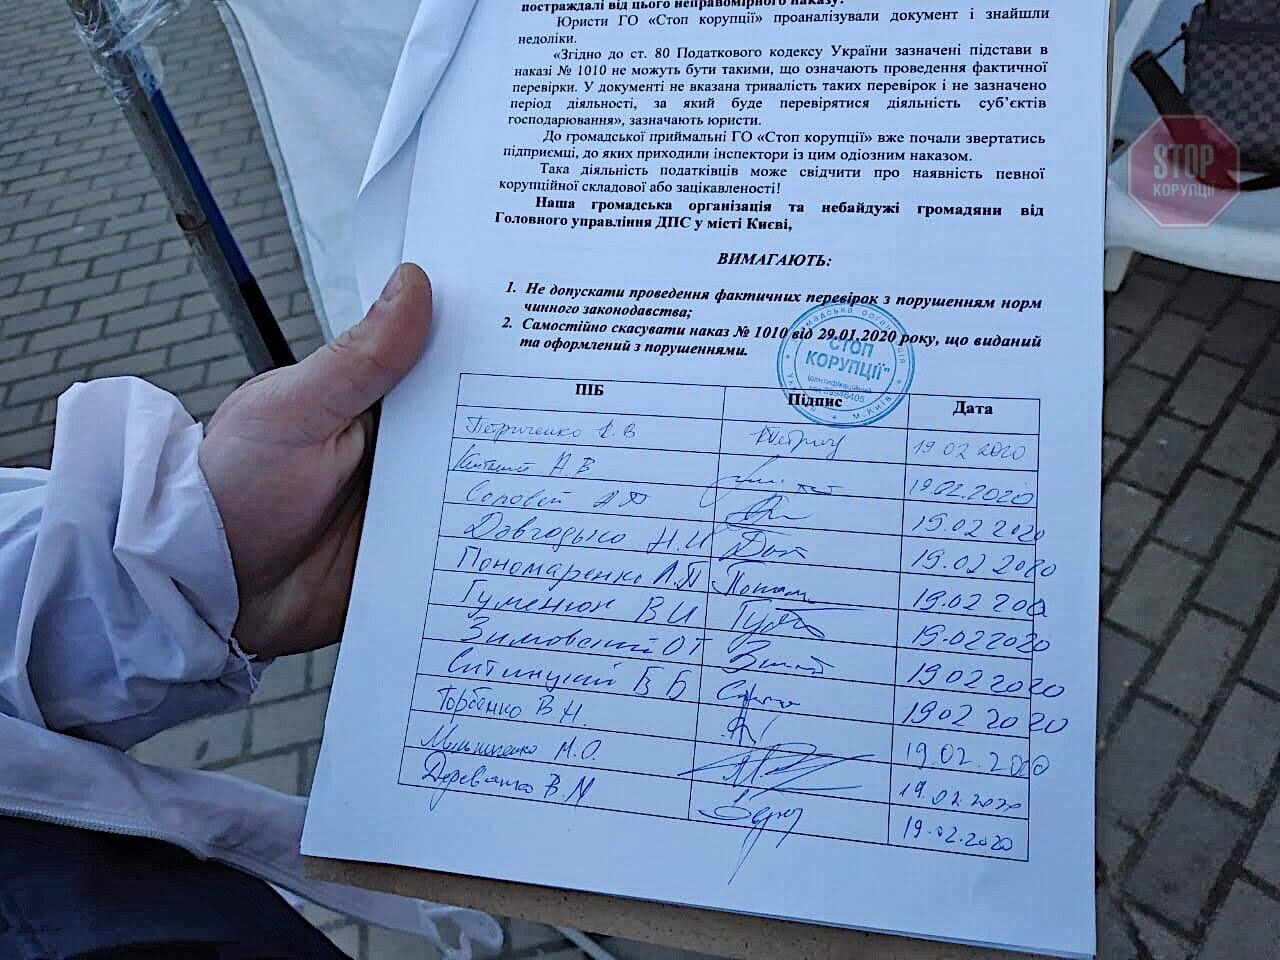 постраждалі від цього неправомірного наказу.
Юристи ГО «Стоп корупції» проаналізували документ і знайшли
недоліки.
«Згідно до ст. 80 Податкового кодексу України зазначені підстави в
наказі № 1010 не можуть бути такими, що означають проведення фактичної
перевірки. У документі не вказана тривалість таких перевірок і не зазначено
період діяльності, за який буде перевірятися діяльність суб’єктів
господарювання», зазначають юристи.
До громадської приймальні ГО «Стоп корупції» вже почали звертатись
підприємці, до яких приходили інспектори із цим одіозним наказом.
Така діяльність податківців може свідчити про наявність певної
корупційної складової або зацікавленості!
Наша громадська організація та небайдужі громадяни від
Головного управління ДПС у місті Києві,
ВИМАГАЮТЬ:
1. Не допускати проведення фактичних перевірок з порушенням норм
чинного законодавства;
2. Самостійно скасувати наказ № 1010 від 29.01.2020 року, що виданий
та оформлений з порушеннями.
громадська організація
"СТОП
КОРУПЦІЇ"
м. Київ
STOP
КОРУПЦІЇ
ПІБ Підпис Дата
Петриченко 19 02 2020
А. В 19.02.2020
Соловей А П 19.02 2020
Довгодько Н. И 19.02 2020
Пономаренко Л.П 19.02 202
Гуменюк В И 19.02 2020
Зимовский О Т 19.02 2020
В Б 19.02 2020
Горбенко В Н. 19.02.2020
М. О. 19.02.2020
Деревянко В. М 19.02.2020